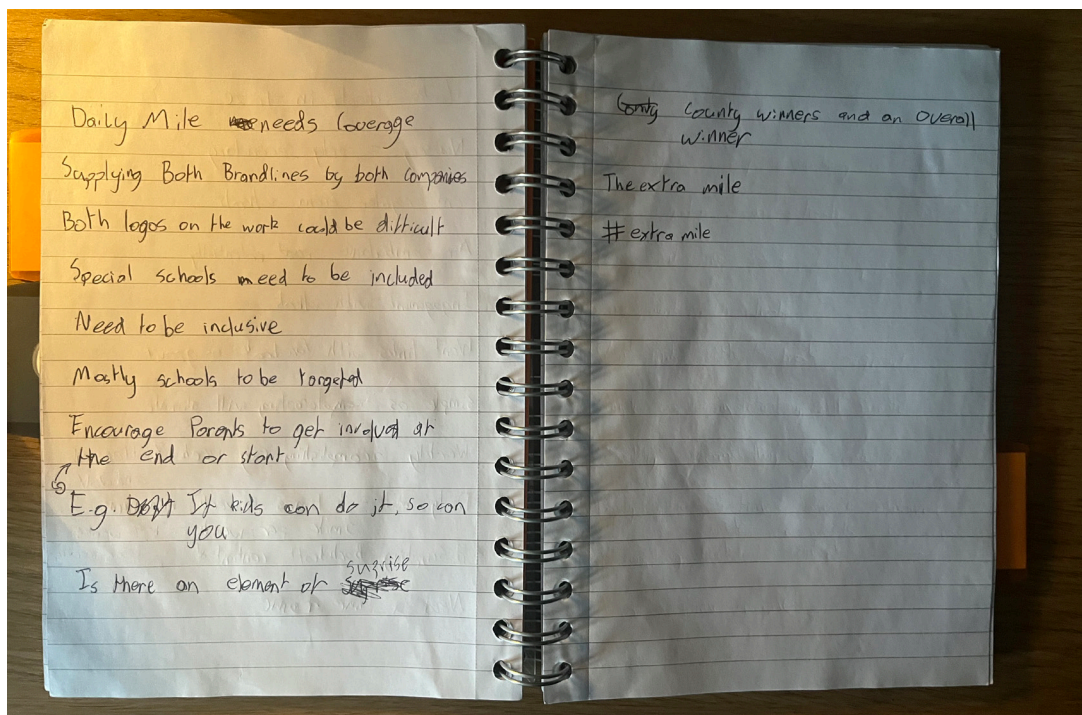 Daily Mile needs Coverage
Supplying Both Brandlines by both companies
Both logos on the work could be difficult
Special schools need to be included
Need to be inclusive
Mostly schools to be targeted
Encourage Parents to get involved at
the end or start
E.g. If kids can do it, so can
you
Is there an element of suprise
County county winners and an overall
winner
The extra mile
#extra mile